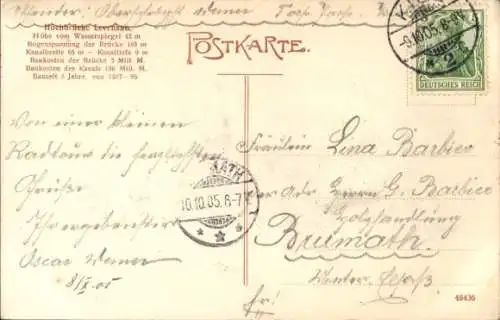 Hochbrücke Levensau.
Höhe vom Wasserspiegel 42 m
Bogenspannung der Brücke 165 m
Kanalbreite 65 m - Kanaltiefe 9 m
Baukosten der Brücke 5 Mill M.
Baukosten des Kanals 156 Mill. M.
Bauzeit 8 Jahre, von 1887-95
POSTKARTE.
9.10.05. 8-9V
DEUTSCHES REICH
Von einer kleinen
Radtour die herzlichsten
Grüsse
Ihr ergebenster
Oscar Werner
8/X 05
MATH
10.10.05. 6-7
Fräulein Lina Barbier
per adr Herrn G. Barbier
Holzhandlung
Brumath.
Unter-Elsaß
frei
49436